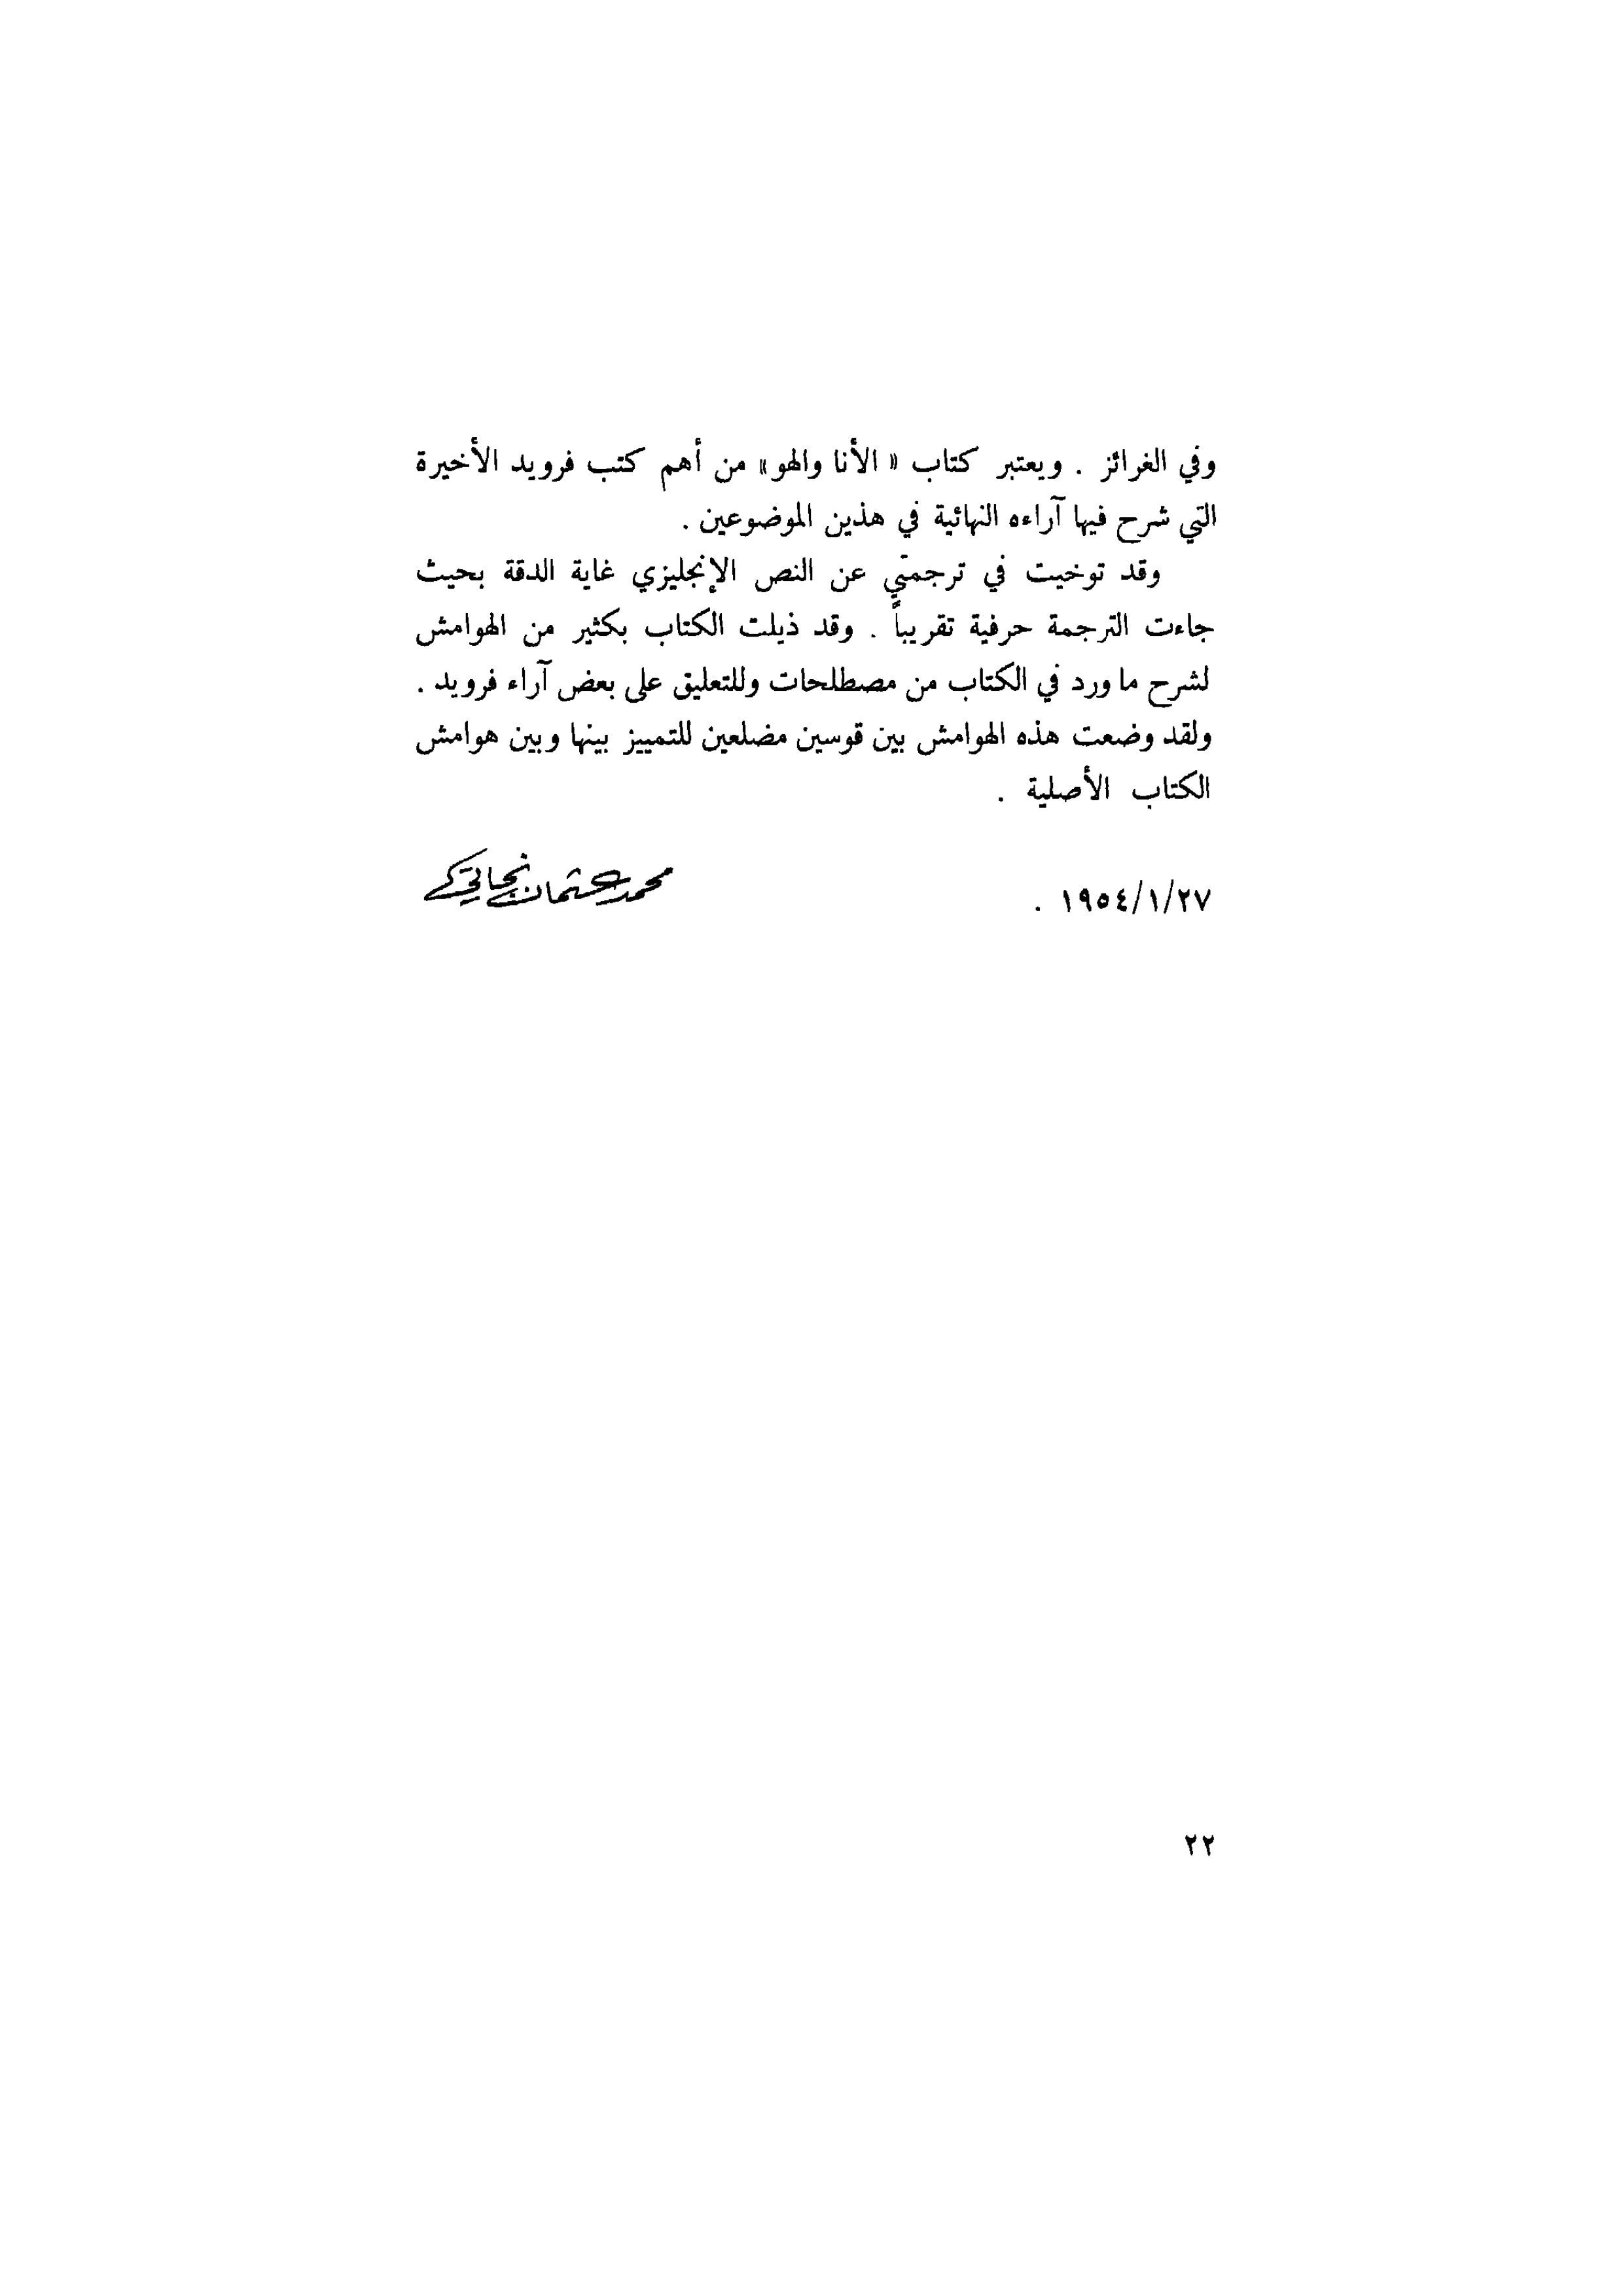 وفي الغرائز . ويعتبر كتاب « الأنا والهو» من أهم كتب فرويد الأخيرة
التي شرح فيها آراءه النهائية في هذين الموضوعين .
وقد توخيت في ترجمتي عن النص الإنجليزي غاية الدقة بحيث
جاءت الترجمة حرفية تقريباً . وقد ذيلت الكتاب بكثير من الهوامش
لشرح ما ورد في الكتاب من مصطلحات وللتعليق على بعض آراء فرويد .
ولقد وضعت هذه الهوامش بين قوسين مضلعين للتمييز بينها وبين هوامش
الكتاب الأصلية .
٢٧/١/١٩٥٤ .
محمد عثمان نجاتي
٢٢